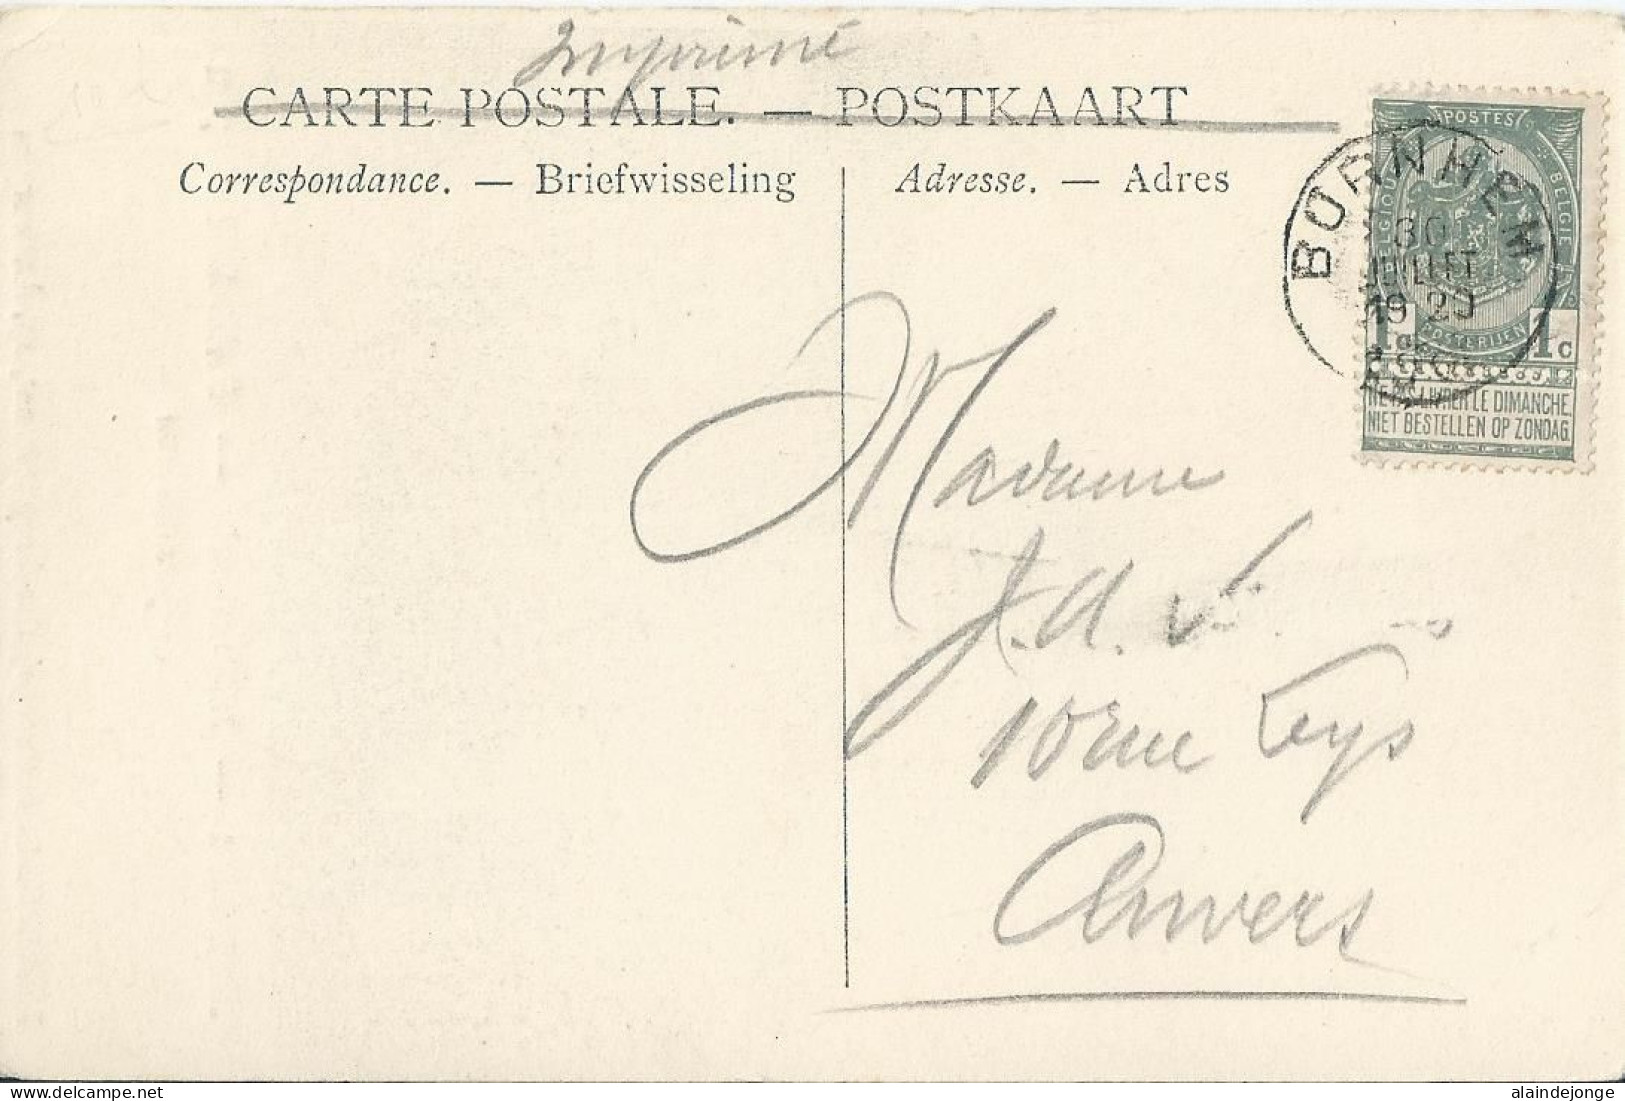 Imprimé
CARTE POSTALE. — POSTKAART
Correspondance. — Briefwisseling
Adresse. — Adres
POSTES
BELGIQUE
BELGIE
POSTERIJEN
1 1c
NE PAS LIVRER LE DIMANCHE
NIET BESTELLEN OP ZONDAG.
BORNHEM
30
JUILLET
19
Madame
J. A.
10 rue Leys
Anvers
alaindejonge